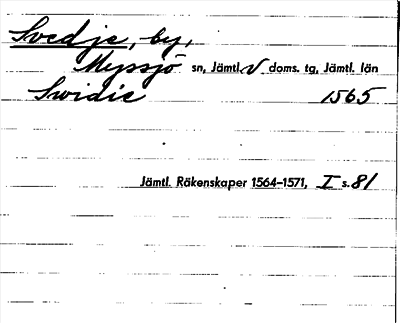 Svedje, by,
Myssjö sn, Jämtl. V doms. tg, Jämtl. län
Swidie 1565
Jämtl. Räkenskaper 1564–1571, I s. 81